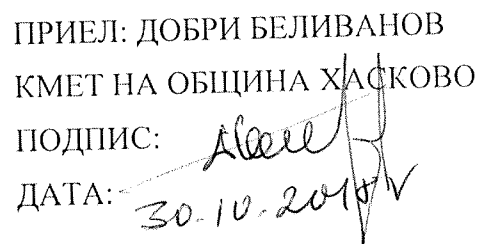 ПРИЕЛ: ДОБРИ БЕЛИВАНОВ
КМЕТ НА ОБЩИНА ХАСКОВО
ПОДПИС:
ДАТА: 30.10.2018г